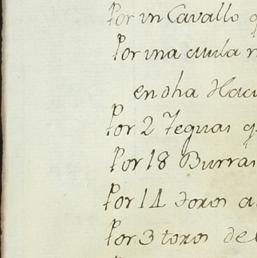 Por vn Cavallo q
Por vna
en dha Haci
Por 2 Yeguas q
Por 18 Burras
Por 14 Toros a
Por 3 toros de